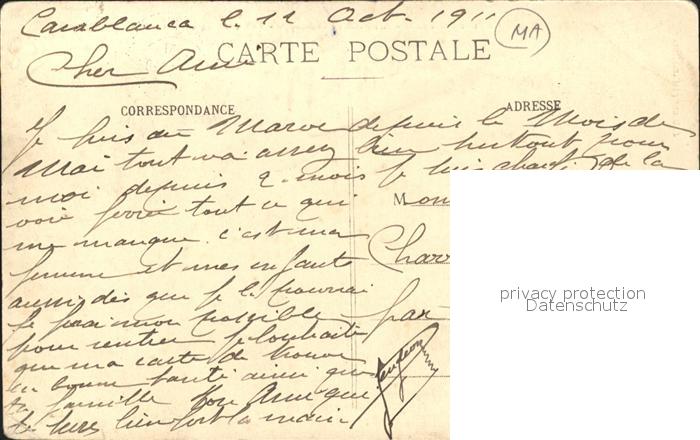 Casablanca le 12 Oct. 1911
MA
CARTE POSTALE
Cher Ami
CORRESPONDANCE
ADRESSE
Je suis au Maroc depuis le Mois de
Mai tout va assez bien surtout pour
moi depuis 2 mois je suis chef de la
voie ferrée tout ce qui
me manque c'est ma
femme et mes enfants
aussi dès que je le pourrai
je ferai mon possible
pour rentrer je souhaite
que ma carte te trouve
en bonne santé ainsi que
ta famille Ton Ami que
te serre bien fort la main
Mon
Charr
par
privacy protection
Datenschutz